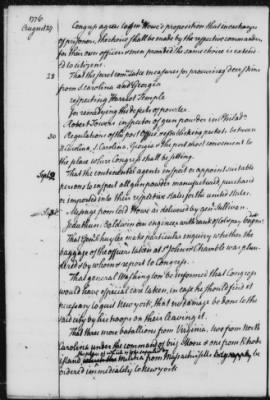 1776
August 24
Congress agree to Genl Howe's proposition that in exchanges
of prisoners, the choice shall be made by the respective commanders
for their own officers & men provided the same choice is extend
ed to citizens.
28 That the secret committee measures for procuring deer skins
from S. carolina and Georgia
respecting Harriot Temple
for remedying the defects of powder.
Robert Towers inspector of gun powder in Philada.
30 Regulations of the post Office establishing packets between
N. Carolina, S. Carolina, Georgia & the port most convenient to
the place where Congress shall be sitting.
Sept. 2 That the continental agents inspect or appoint suitable
persons to inspect all gun powder manufactured, purchased
or imported into their respective states for the united States.
Sept. 3 Message from Lord Howe is delivered by genl Sullivan.
Jeduthan Baldwin an engineer with rank & pay of
That Genl Schuyler make particular enquiry whether the
baggage of the officers taken at St. Johns & Chamblee was plun
dered & by whom & report to Congress.
That general Washington be informed that Congress
would have special care taken, in case he should find it
necessary to quit New york, that no damage be done to the
said city by his troops on their leaving it.
That three more battalions from Virginia, two from North
Carolina under the command of brig. Moore & one from Rhode
island
ordered immediately to New york